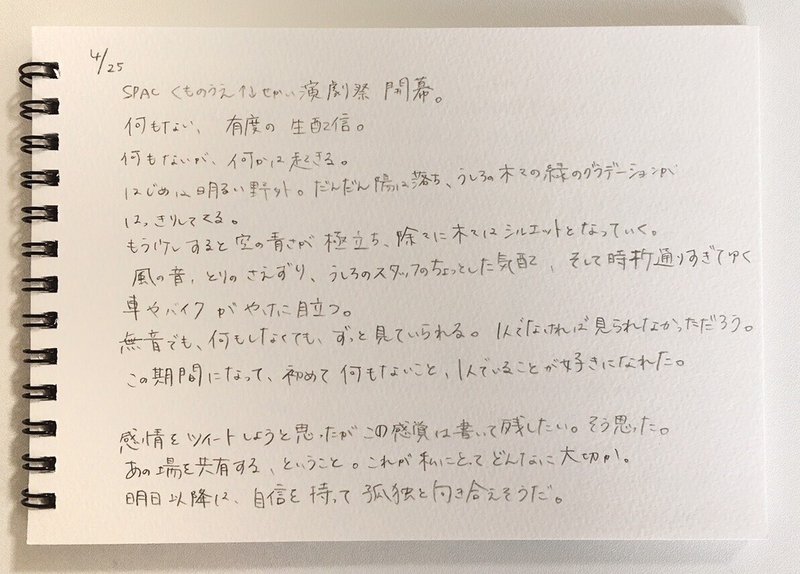 4/25
SPAC くものうえ⅟せかい演劇祭 開幕。
何もない、有度の 生配信。
何もないが、何かは起きる。
はじめは明るい野外。だんだん陽は落ち、うしろの木々の緑のグラデーションが
はっきりしてくる。
もう少しすると空の青さが極立ち、除々に木々はシルエットとなっていく。
風の音、とりのさえずり、うしろのスタッフのちょっとした気配、そして時折通りすぎてゆく
車やバイクがやけに目立つ。
無音でも、何もしなくても、ずっと見ていられる。1人でなければ見られなかっただろう。
この期間になって、初めて何もないこと、1人でいることが好きになれた。
感情をツイートしようと思ったがこの感覚は書いて残したい。そう思った。
あの場を共有する、ということ。これが私にとってどんなに大切か。
明日以降は、自信を持って孤独と向き合えそうだ。